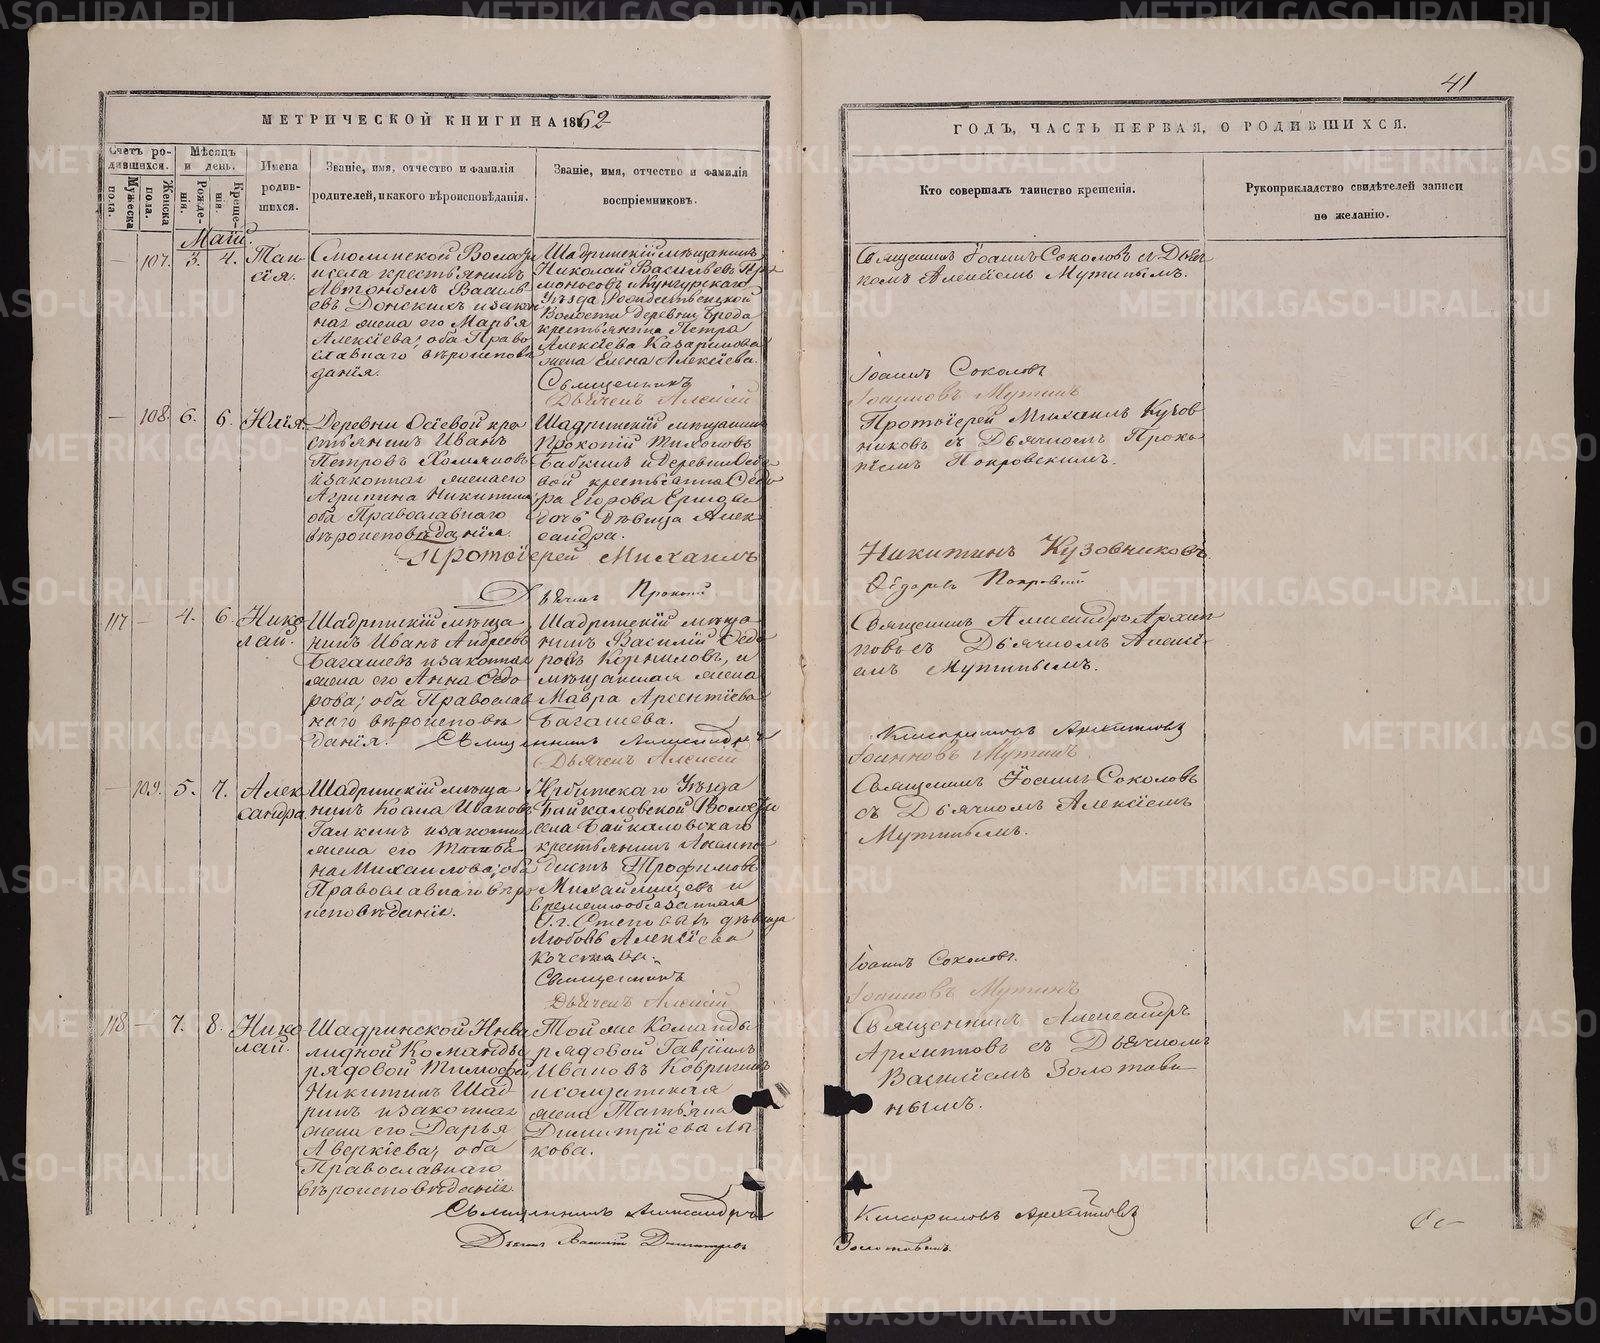 41
МЕТРИЧЕСКОЙ КНИГИ НА 1862
ГОДЪ, ЧАСТЬ ПЕРВАЯ, О РОДИВШИХСЯ.
Счетъ родившихся.
Мужеска пола.
Женска пола.
Мѣсяцъ и день.
Рожденія.
Крещенія.
Имена родившихся.
Званіе, имя, отчество и фамилія
родителей, и какого вѣроисповѣданія.
Званіе, имя, отчество и фамилія
воспріемниковъ.
Кто совершалъ таинство крещенія.
Рукоприкладство свидѣтелей записи
по желанію.
Май.
107. 3. 4.
Таисія.
Смолинской Волости
и села крестьянинъ
Автономъ Василь
евъ Донскихъ и закон
ная жена его Марья
Алексіева; оба Право
славнаго вѣроисповѣ
данія.
Шадринскій мѣщанинъ
Николай Васильевъ
и Кунгурскаго
Уѣзда Рождественской
Волости деревни Бреда
крестьянина Петра
Алексіева Казаринова
жена Елена Алексіева.
Священникъ
Дьячекъ Алексій
Священникъ Іоаннъ Соколовъ съ Дьяч
комъ Алексіемъ Мутинымъ.
Іоаннъ Соколовъ
Іоанновъ Мутинъ
108. 6. 6.
Юлія.
Деревни Осѣевой кре
стьянинъ Иванъ
Петровъ Хомяковъ
и законная жена его
Агрипина Никитина
оба Православнаго
вѣроисповѣданія
Шадринскій мѣщанинъ
Прокопій Тихоновъ
Бабкинъ и деревни Осѣе
вой крестьянина Ѳедо
ра Егорова
дочь дѣвица Алек
сандра.
Протоіерей Михаилъ
Дьячекъ Прокопій
Протоіерей Михаилъ Кузов
никовъ съ Дьячкомъ Проко
піемъ Покровскимъ.
Никитинъ Кузовниковъ
Ѳедоровъ Покровскій
117 4. 6.
Нико
лай.
Шадринскій мѣща
нинъ Иванъ Андреевъ
Багашевъ и законная
жена его Анна Ѳедо
рова; оба Православ
наго вѣроисповѣ
данія.
Шадринскій мѣща
нинъ Василій Ѳедо
ровъ Корниловъ, и
мѣщанская жена
Мавра Арсентіева
Багашева.
Священникъ Александръ
Дьячекъ Алексій
Священникъ Александръ Архип
повъ съ Дьячкомъ Алексі
емъ Мутинымъ.
Архипповъ
Іоанновъ Мутинъ
109. 5. 7.
Алек
сандра.
Шадринскій мѣща
нинъ Косма Ивановъ
Галкинъ и законная
жена его Татья
на Михаилова; оба
Православнаго вѣро
исповѣданія.
Ирбитскаго Уѣзда
Байкаловской Волости
села Байкаловскаго
крестьянинъ
Трофимовъ
и
временнообязанная
Г. г. дѣвица
Любовь Алексіева
Священникъ
Дьячекъ Алексій
Священникъ Іоаннъ Соколовъ
съ Дьячкомъ Алексіемъ
Мутинымъ.
Іоаннъ Соколовъ.
Іоанновъ Мутинъ
118 7. 8.
Нико
лай.
Шадринской Инва
лидной Команды
рядовой Тимофей
Никитинъ Шад
ринъ и законная
жена его Дарья
Аверкіева; оба
Православнаго
вѣроисповѣданія.
Той же Команды
рядовой Гавріилъ
Ивановъ Ковригинъ
и солдатская
жена Татьяна
Димитріева Лы
кова.
Священникъ Александръ
Дьячекъ Василій Димитріевъ
Священникъ Александръ
Архипповъ съ Дьячкомъ
Василіемъ Золотави
нымъ.
Архипповъ
Золотавинъ.
METRIKI.GASO-URAL.RU